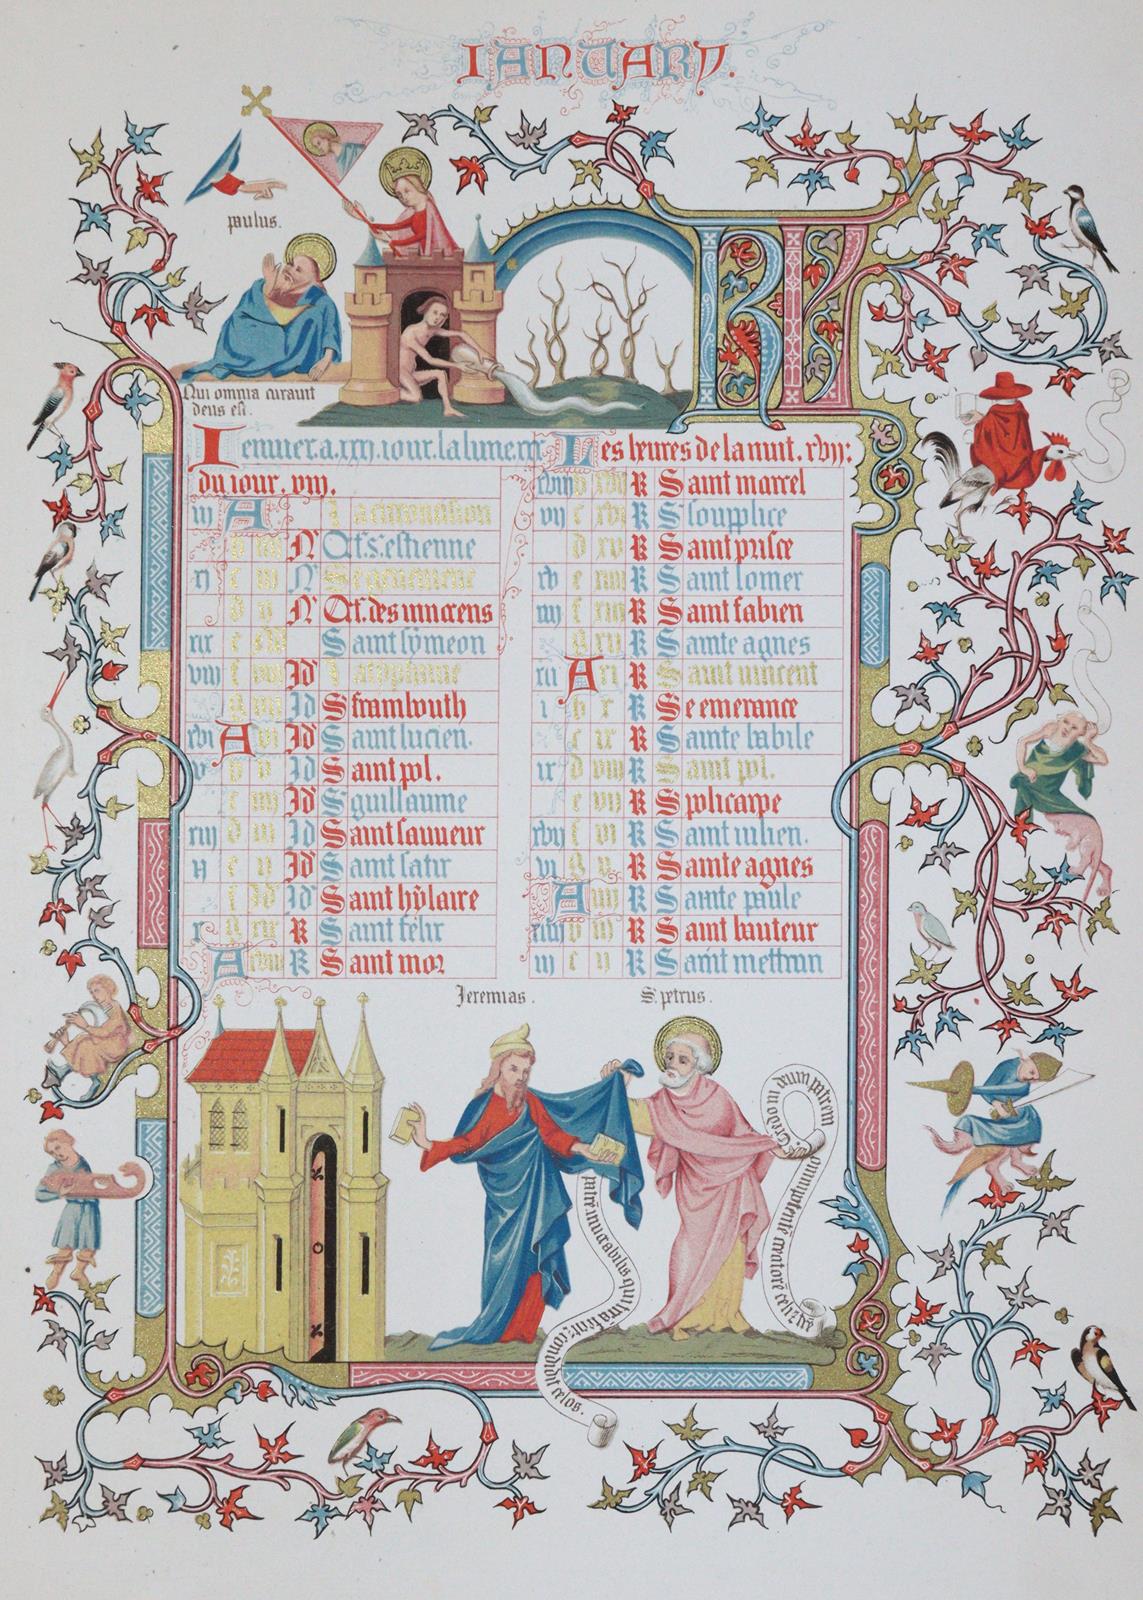 IANUARY.
paulus.
Qui omnia curauit
deus est.
KL
Ienuier.a.xxxi.iour.la lune.xxx
du iour. viii.
iii A
d iiii N Oct.s.estienne
xi c iii N Segeneuieue
d ii N Oct.des innocens
xix e Saint symeon
viii f viii Id
g vii Id Sframbouth
xvi A vi Id Saint lucien.
v b v Id Saint pol.
c iiii Id Sguillaume
xiii d iii Id Saint sauueur
ii e ii Id Saint satir
f Id Id Saint hylaire
x g xix K Saint felix
A xviii K Saint mor
Les heures de la nuit. xvii:
xviii b xvii K Saint marcel
vii c xvi K Ssouplice
d xv K Saint prisce
xv e xiiii K Saint lomer
iiii f xiii K Saint fabien
g xii K Sainte agnes
xii A xi K Saint vincent
i b x K Se emerance
c ix K Sainte babile
ix d viii K Saint pol.
e vii K Spolicarpe
xvii f vi K Saint iulien.
vi g v K Sainte agnes
A iiii K Sainte paule
xiiii b iii K Saint bauteur
iii c ii K Saint mettran
Jeremias.
S. petrus.
patrem inuocabitis qui terram fecit et condidit celos.
Credo in deum patrem
omnipotentem creatorem celi et